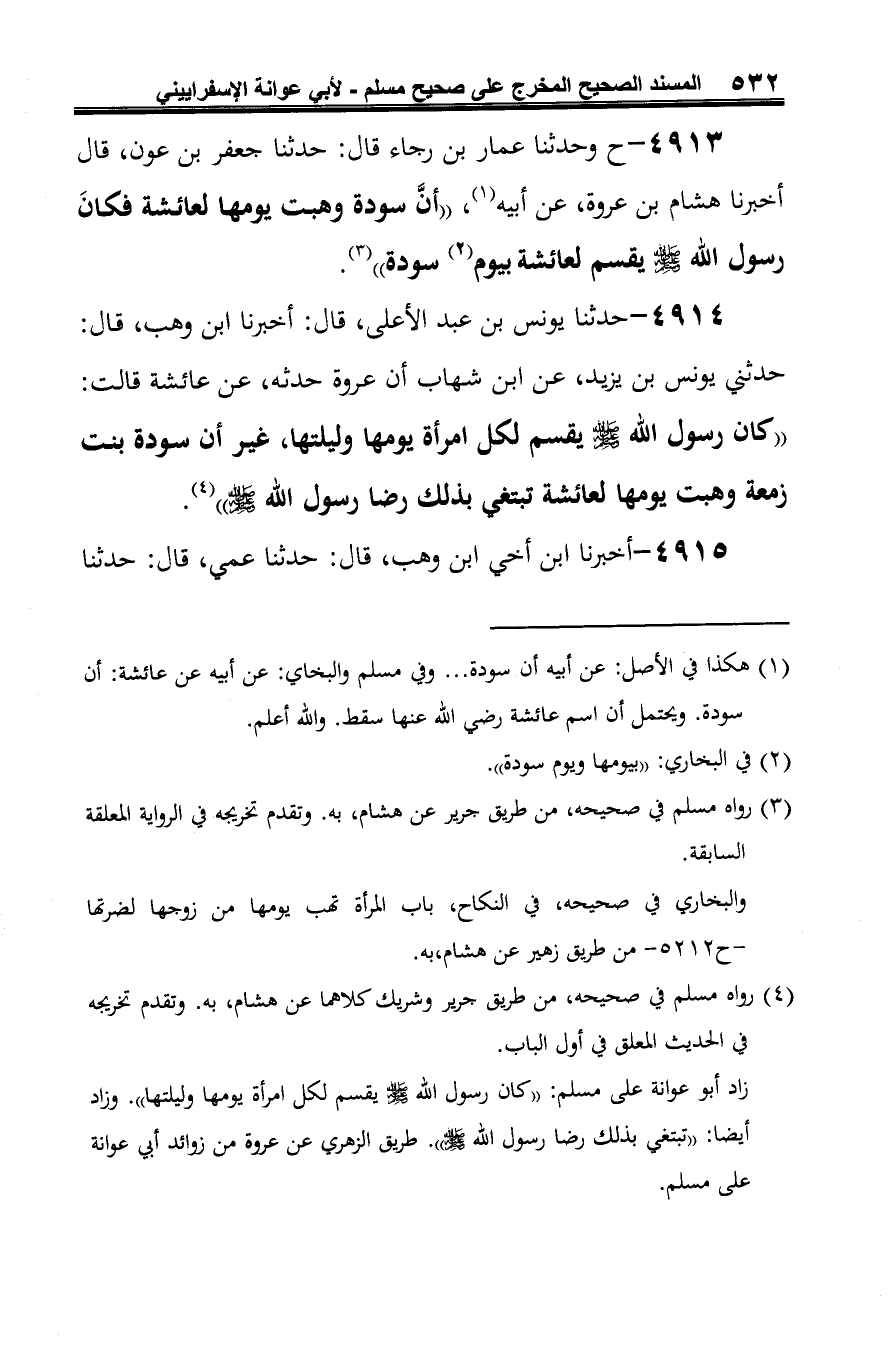 ٥٣٢ المسند الصحيح المخرج على صحيح مسلم - لأبي عوانة الإسفراييني
٤٩١٣-ح وحدثنا عمار بن رجاء قال: حدثنا جعفر بن عون، قال
أخبرنا هشام بن عروة، عن أبيه(١)، ((أنَّ سودة وهبت يومها لعائشة فكانَ
رسول الله ﷺ يقسم لعائشة بيوم(٢) سودة))(٣).
٤٩١٤-حدثنا يونس بن عبد الأعلى، قال: أخبرنا ابن وهب، قال:
حدثني يونس بن يزيد، عن ابن شهاب أن عروة حدثه، عن عائشة قالت:
((كان رسول الله ﷺ يقسم لكل امرأة يومها وليلتها، غير أن سودة بنت
زمعة وهبت يومها لعائشة تبتغي بذلك رضا رسول الله ﷺ))(٤).
٤٩١٥-أخبرنا ابن أخي ابن وهب، قال: حدثنا عمي، قال: حدثنا
(١) هكذا في الأصل: عن أبيه أن سودة... وفي مسلم والبخاي: عن أبيه عن عائشة: أن
سودة. ويحتمل أن اسم عائشة رضي الله عنها سقط. والله أعلم.
(٢) في البخاري: ((بيومها ويوم سودة)).
(٣) رواه مسلم في صحيحه، من طريق جرير عن هشام، به. وتقدم تخريجه في الرواية المعلقة
السابقة.
والبخاري في صحيحه، في النكاح، باب المرأة تهب يومها من زوجها لضرتها
-ح٥٢١٢- من طريق زهير عن هشام،به.
(٤) رواه مسلم في صحيحه، من طريق جرير وشريك كلاهما عن هشام، به. وتقدم تخريجه
في الحديث المعلق في أول الباب.
زاد أبو عوانة على مسلم: ((كان رسول الله ﷺ يقسم لكل امرأة يومها وليلتها)). وزاد
أيضا: ((تبتغي بذلك رضا رسول الله ﷺ)). طريق الزهري عن عروة من زوائد أبي عوانة
على مسلم.